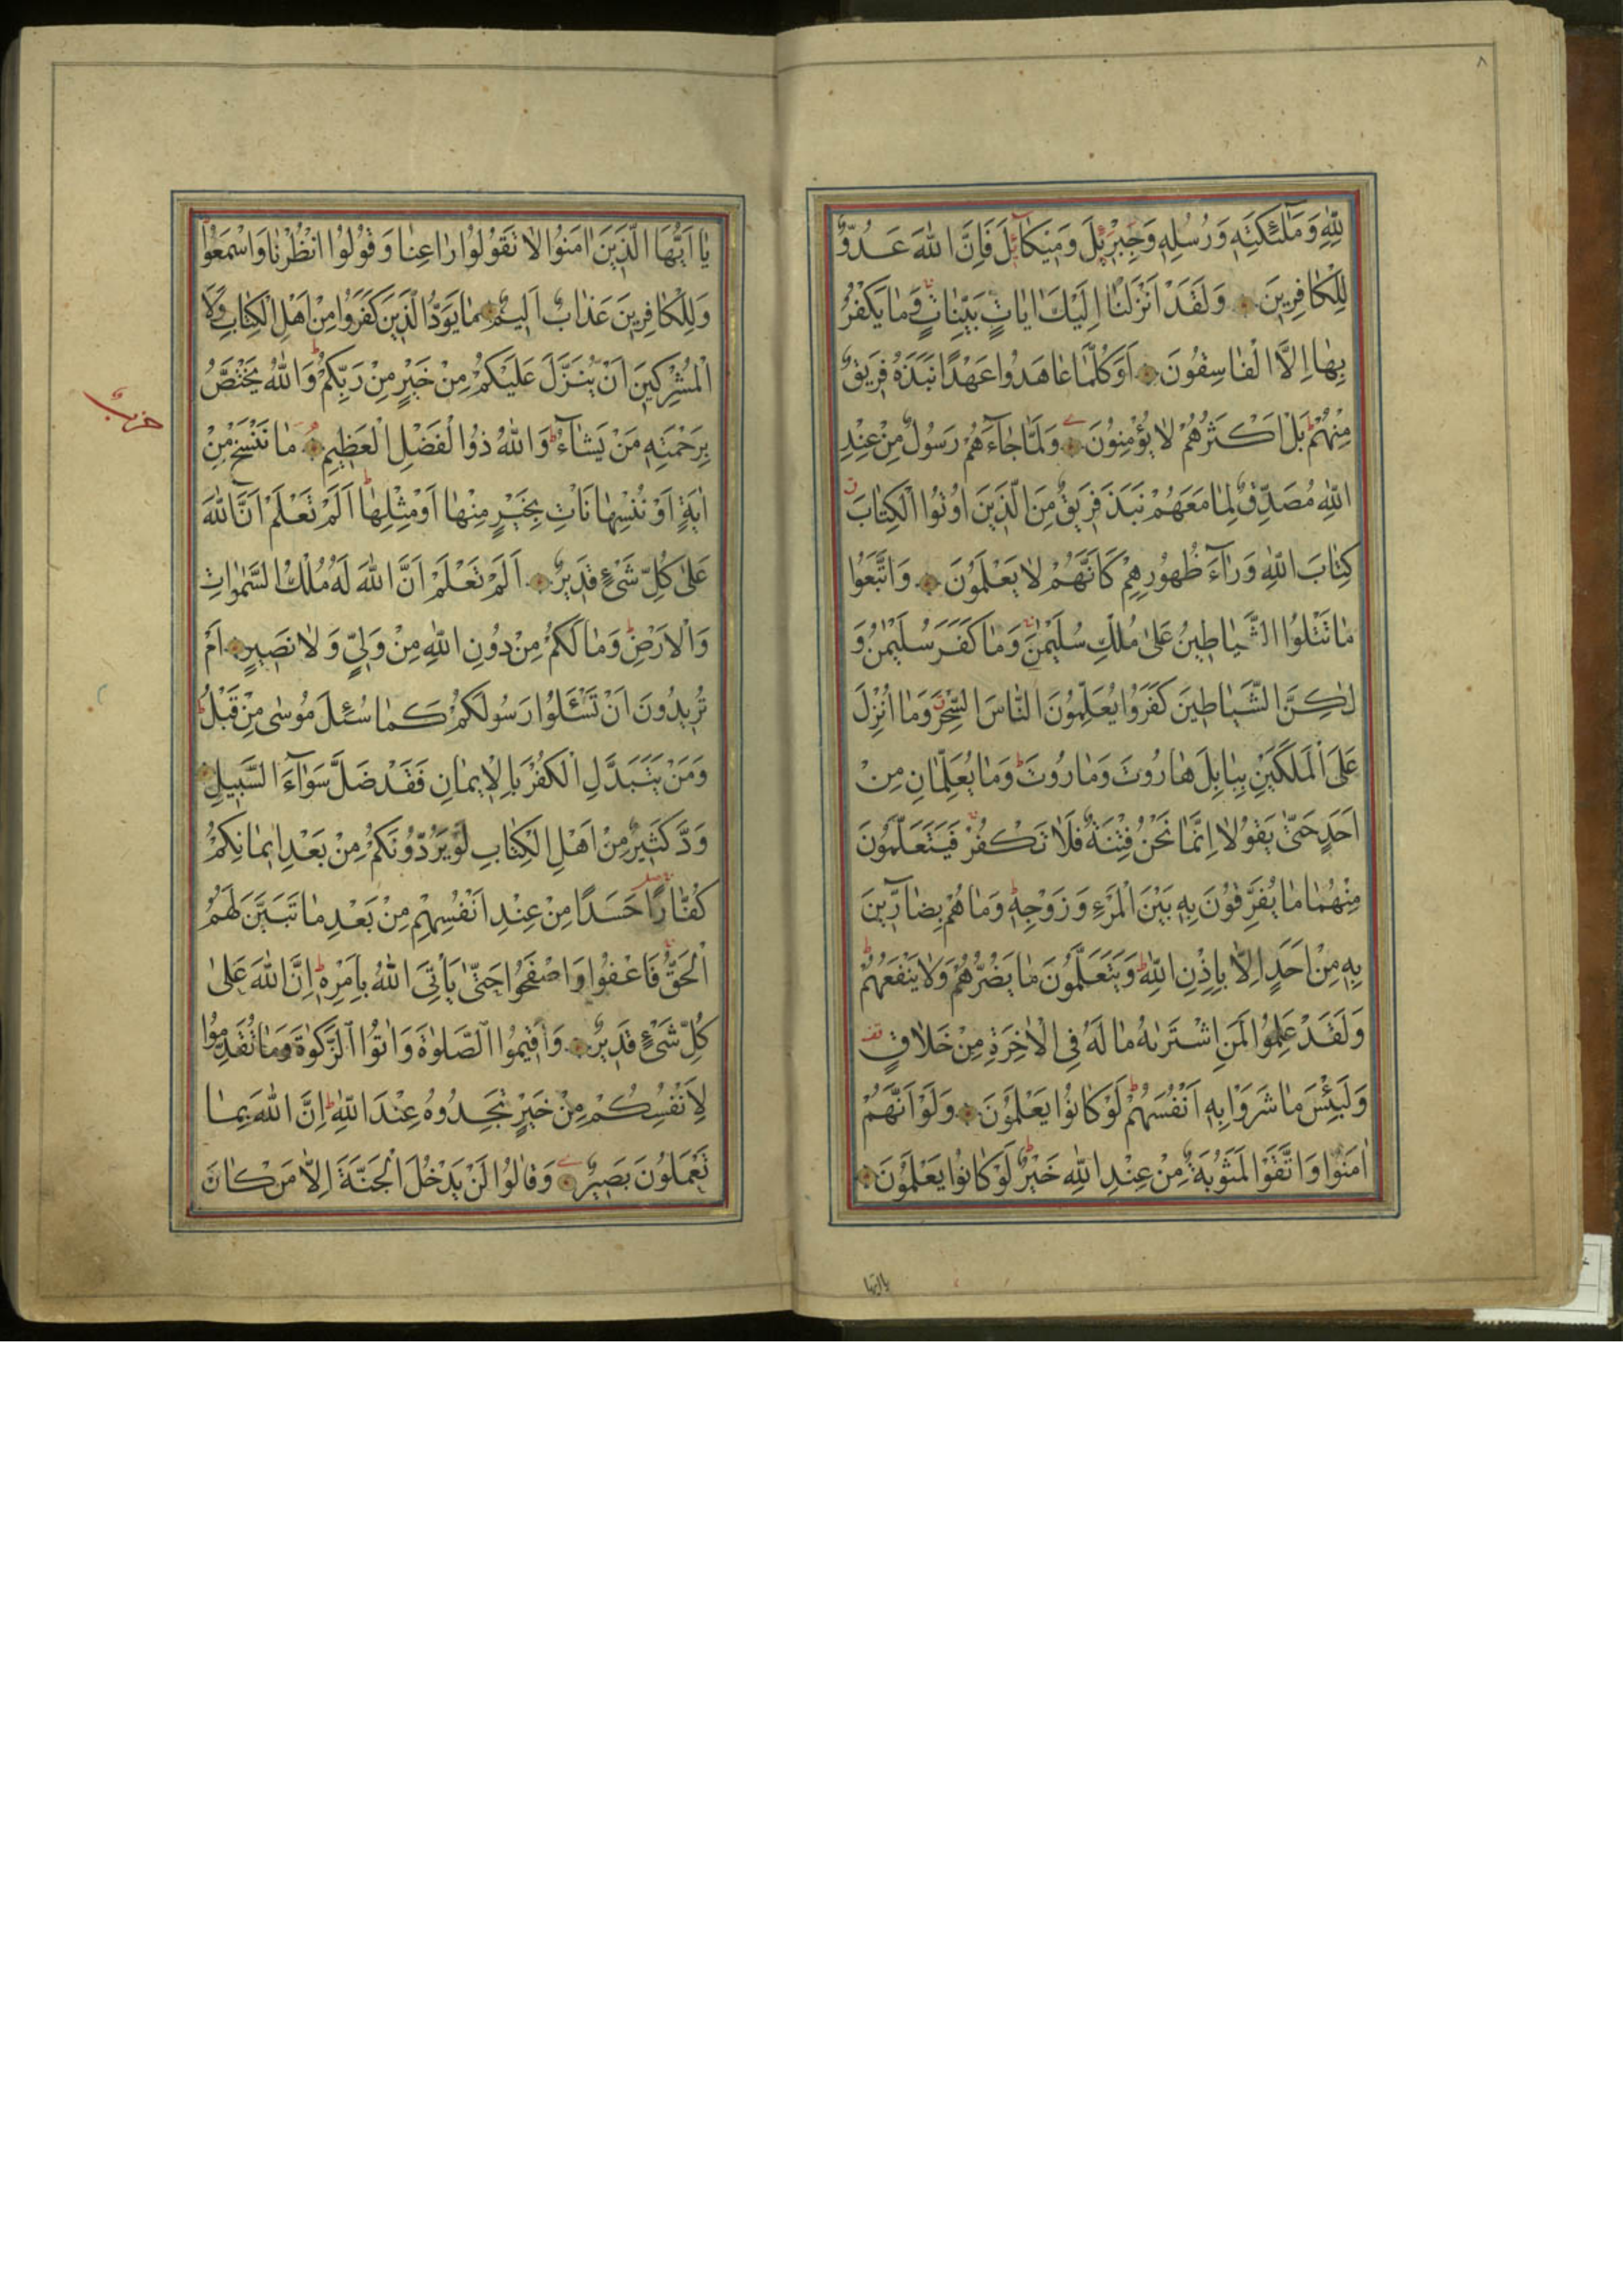 ٨
لِلّٰهِ وَمَلٰئِكَتِهٖ وَرُسُلِهٖ وَجِبْرَئٖلَ وَمٖيكَائِلَ فَاِنَّ اللّٰهَ عَدُوٌّ
لِلْكَافِرٖينَ وَلَقَدْ اَنْزَلْنَا اِلَيْكَ اٰيَاتٍ بَيِّنَاتٍ وَمَا يَكْفُرُ
بِهَا اِلَّا الْفَاسِقُونَ اَوَكُلَّمَا عَاهَدُوا عَهْدًا نَبَذَهُ فَرٖيقٌ
مِنْهُمْ بَلْ اَكْثَرُهُمْ لَا يُؤْمِنُونَ وَلَمَّا جَاءَهُمْ رَسُولٌ مِنْ عِنْدِ
اللّٰهِ مُصَدِّقٌ لِمَا مَعَهُمْ نَبَذَ فَرٖيقٌ مِنَ الَّذٖينَ اُوتُوا الْكِتَابَ
كِتَابَ اللّٰهِ وَرَاءَ ظُهُورِهِمْ كَاَنَّهُمْ لَا يَعْلَمُونَ وَاتَّبَعُوا
مَا تَتْلُوا الشَّيَاطٖينُ عَلٰى مُلْكِ سُلَيْمٰنَ وَمَا كَفَرَ سُلَيْمٰنُ وَ
لٰكِنَّ الشَّيَاطٖينَ كَفَرُوا يُعَلِّمُونَ النَّاسَ السِّحْرَ وَمَا اُنْزِلَ
عَلَى الْمَلَكَيْنِ بِبَابِلَ هَارُوتَ وَمَارُوتَ وَمَا يُعَلِّمَانِ مِنْ
اَحَدٍ حَتّٰى يَقُولَا اِنَّمَا نَحْنُ فِتْنَةٌ فَلَا تَكْفُرْ فَيَتَعَلَّمُونَ
مِنْهُمَا مَا يُفَرِّقُونَ بِهٖ بَيْنَ الْمَرْءِ وَزَوْجِهٖ وَمَا هُمْ بِضَارّٖينَ
بِهٖ مِنْ اَحَدٍ اِلَّا بِاِذْنِ اللّٰهِ وَيَتَعَلَّمُونَ مَا يَضُرُّهُمْ وَلَا يَنْفَعُهُمْ
وَلَقَدْ عَلِمُوا لَمَنِ اشْتَرٰيهُ مَا لَهُ فِى الْاٰخِرَةِ مِنْ خَلَاقٍ
وَلَبِئْسَ مَا شَرَوْا بِهٖ اَنْفُسَهُمْ لَوْ كَانُوا يَعْلَمُونَ وَلَوْ اَنَّهُمْ
اٰمَنُوا وَاتَّقَوْا لَمَثُوبَةٌ مِنْ عِنْدِ اللّٰهِ خَيْرٌ لَوْ كَانُوا يَعْلَمُونَ
يا ايها
يَا اَيُّهَا الَّذٖينَ اٰمَنُوا لَا تَقُولُوا رَاعِنَا وَقُولُوا انْظُرْنَا وَاسْمَعُوا
وَلِلْكَافِرٖينَ عَذَابٌ اَلٖيمٌ مَا يَوَدُّ الَّذٖينَ كَفَرُوا مِنْ اَهْلِ الْكِتَابِ وَلَا
الْمُشْرِكٖينَ اَنْ يُنَزَّلَ عَلَيْكُمْ مِنْ خَيْرٍ مِنْ رَبِّكُمْ وَاللّٰهُ يَخْتَصُّ
بِرَحْمَتِهٖ مَنْ يَشَاءُ وَاللّٰهُ ذُوا لْفَضْلِ الْعَظٖيمِ مَا نَنْسَخْ مِنْ
اٰيَةٍ اَوْ نُنْسِهَا نَاْتِ بِخَيْرٍ مِنْهَا اَوْ مِثْلِهَا اَلَمْ تَعْلَمْ اَنَّ اللّٰهَ
عَلٰى كُلِّ شَىْءٍ قَدٖيرٌ اَلَمْ تَعْلَمْ اَنَّ اللّٰهَ لَهُ مُلْكُ السَّمٰوَاتِ
وَالْاَرْضِ وَمَا لَكُمْ مِنْ دُونِ اللّٰهِ مِنْ وَلِيٍّ وَلَا نَصٖيرٍ اَمْ
تُرٖيدُونَ اَنْ تَسْئَلُوا رَسُولَكُمْ كَمَا سُئِلَ مُوسٰى مِنْ قَبْلُ
وَمَنْ يَتَبَدَّلِ الْكُفْرَ بِالْاٖيمَانِ فَقَدْ ضَلَّ سَوَاءَ السَّبٖيلِ
وَدَّ كَثٖيرٌ مِنْ اَهْلِ الْكِتَابِ لَوْ يَرُدُّونَكُمْ مِنْ بَعْدِ اٖيمَانِكُمْ
كُفَّارًا حَسَدًا مِنْ عِنْدِ اَنْفُسِهِمْ مِنْ بَعْدِ مَا تَبَيَّنَ لَهُمُ
الْحَقُّ فَاعْفُوا وَاصْفَحُوا حَتّٰى يَاْتِىَ اللّٰهُ بِاَمْرِهٖ اِنَّ اللّٰهَ عَلٰى
كُلِّ شَىْءٍ قَدٖيرٌ وَاَقٖيمُوا الصَّلٰوةَ وَاٰتُوا الزَّكٰوةَ وَمَا تُقَدِّمُوا
لِاَنْفُسِكُمْ مِنْ خَيْرٍ تَجِدُوهُ عِنْدَ اللّٰهِ اِنَّ اللّٰهَ بِمَا
تَعْمَلُونَ بَصٖيرٌ وَقَالُوا لَنْ يَدْخُلَ الْجَنَّةَ اِلَّا مَنْ كَانَ
حزب